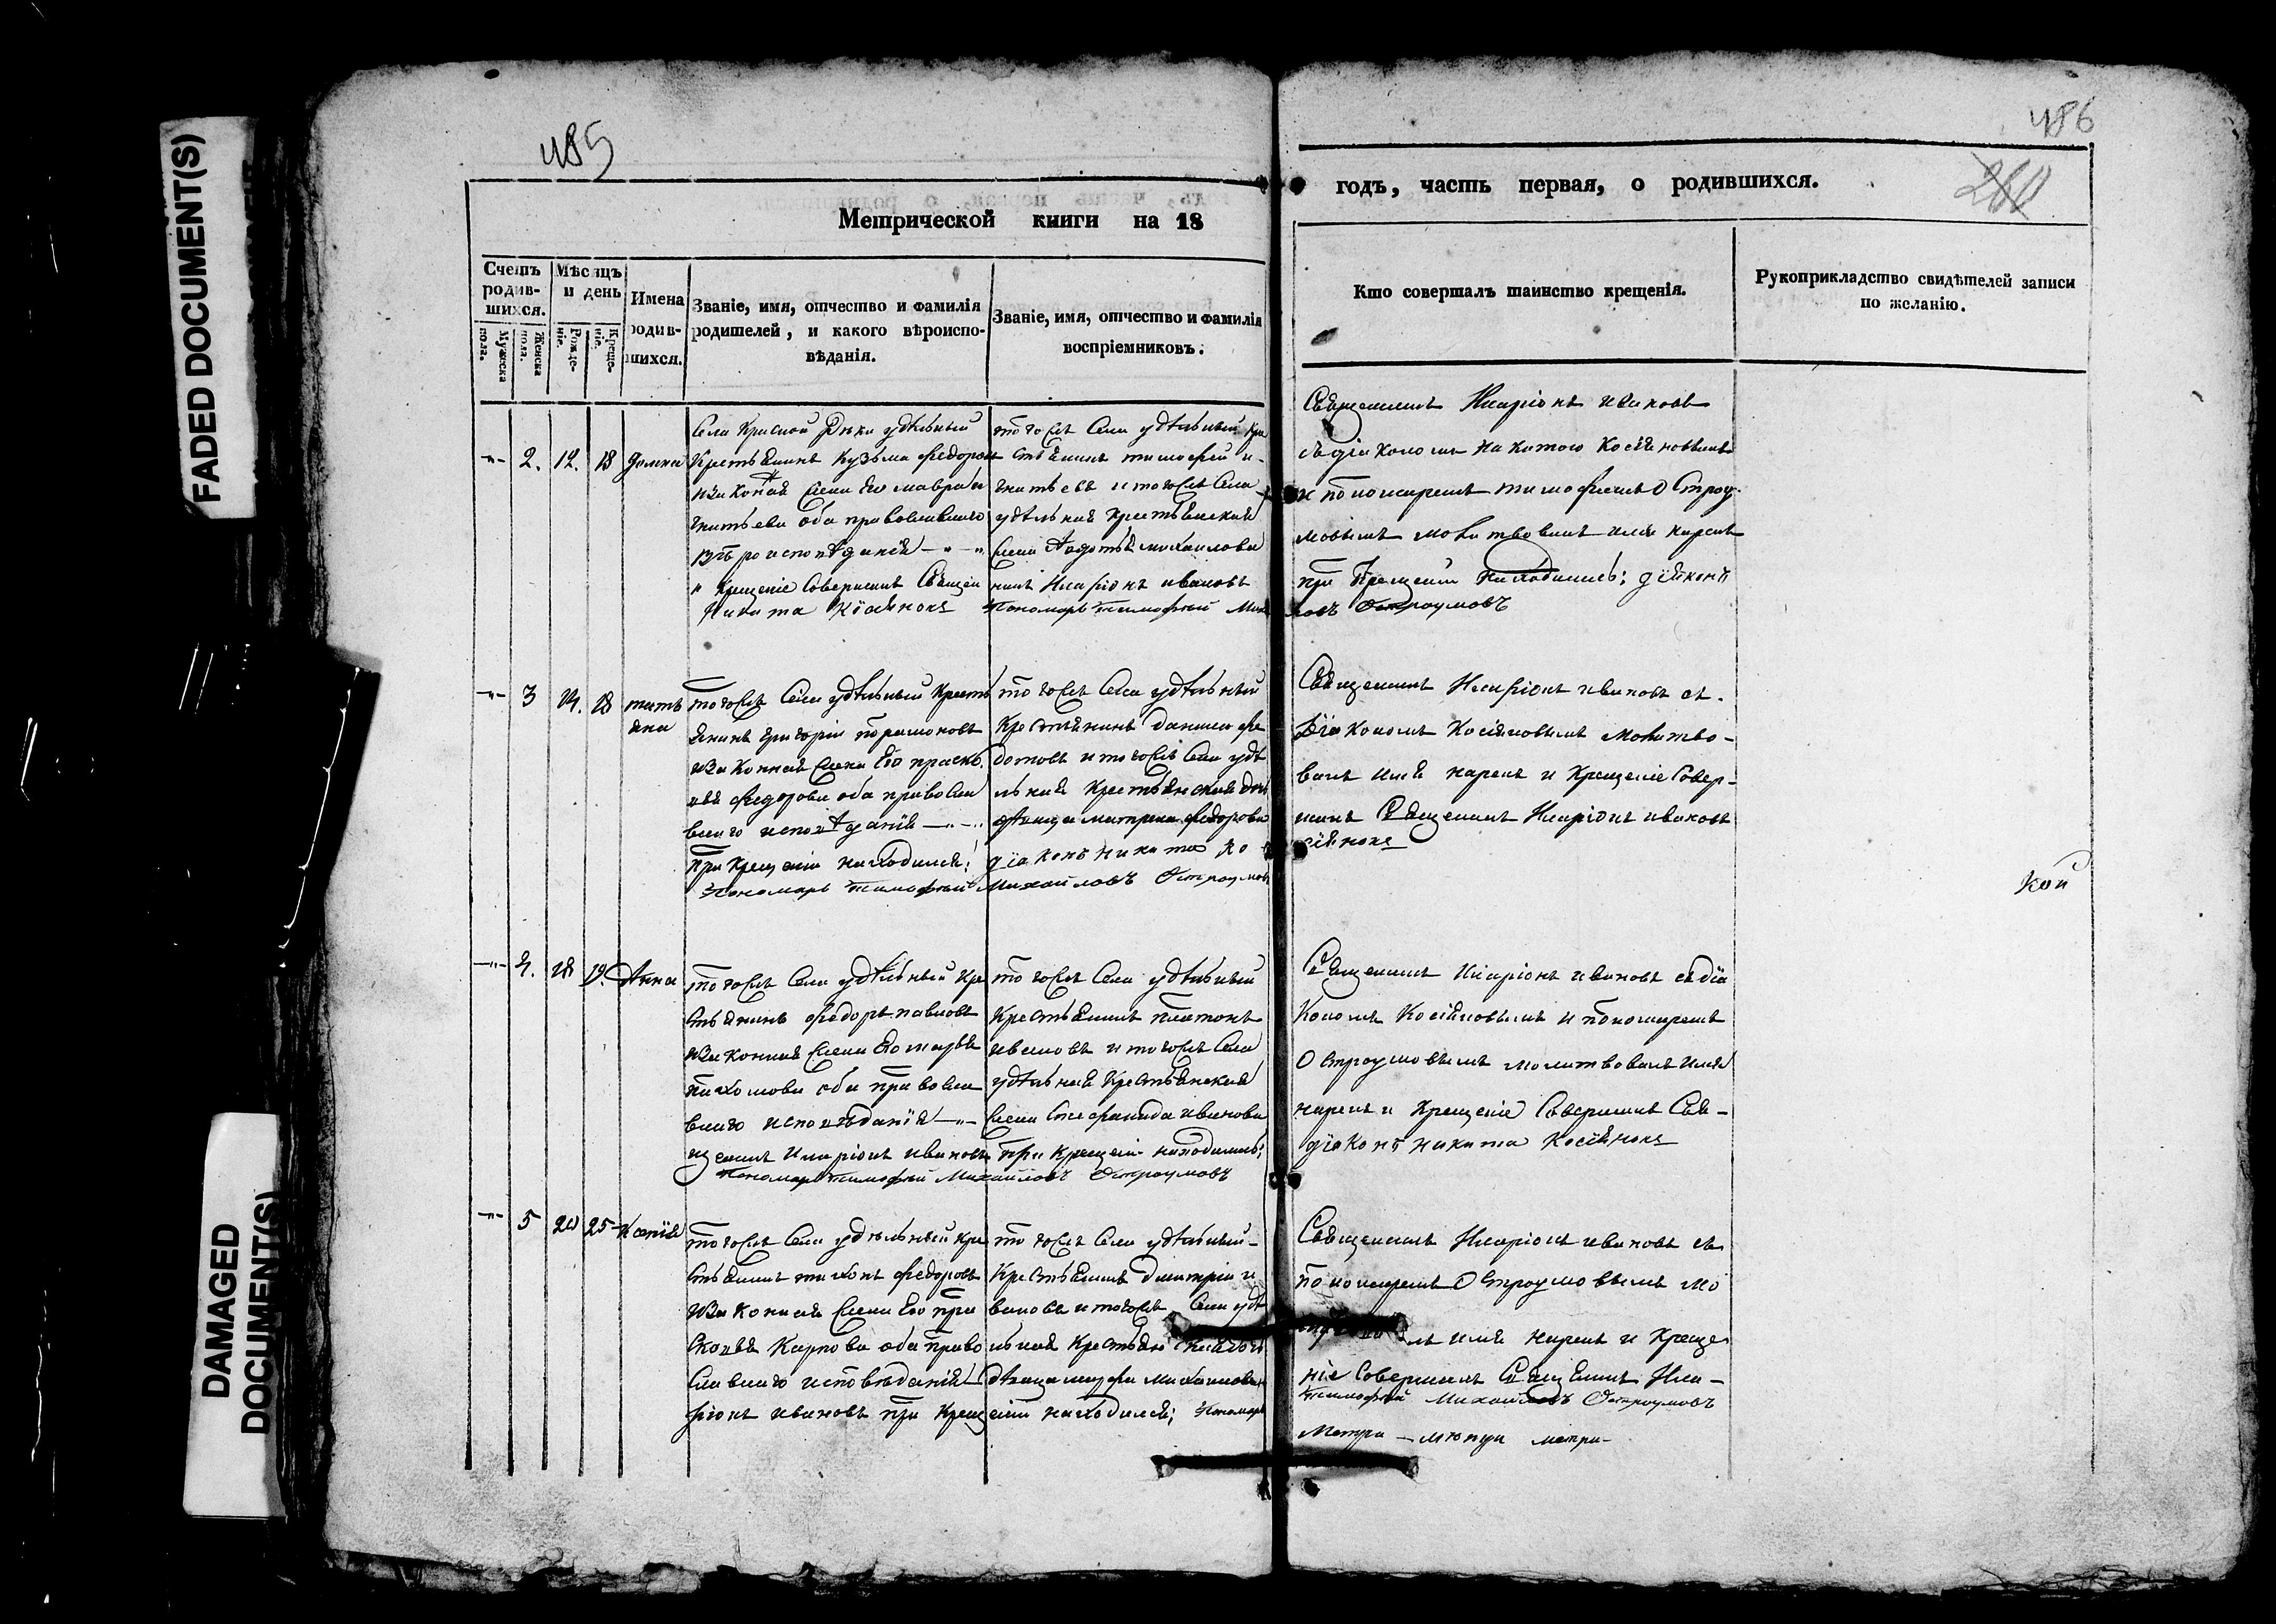 FADED DOCUMENT(S)
DAMAGED DOCUMENT(S)
485
Метрической книги на 18
Счетъ родив-шихся.
Мужеска пола.
Женска пола.
Мѣсяцъ и день
Рожде-нія.
Креще-нія.
Имена родив-шихся.
Званіе, имя, отчество и фамилія
родителей, и какого вѣроиспо-
вѣданія.
Званіе, имя, отчество и фамилія
воспріемниковъ.
2. 12. 18 Домна
Села Красной Рѣки удѣльный
Крестьянинъ Кузьма Федоровъ
изаконная жена Его мавра и
гнатьева оба православнаго
вѣроисповѣданія
Крещеніе Совершилъ Священ
Никита Косіянокъ
тогожъ Села удѣльный кре
стьянинъ тимофей и-
гнатьевъ итогожъ Села
удѣльная крестьянская
жена Авдотья михаилова
никъ Иларіонъ ивановъ
Пономарь Тимофей Михаи
3 14. 18 татьяна
тогожъ Села удѣльный Кресть
янинъ григорій
изаконная жена Его праско
вья федорова оба православ
внаго исповѣданія
При крещеніи находился:
Пономарь Тимофей
тогожъ Села удѣльный
Крестьянинъ данило фе
дотовъ итогожъ Села удѣ
льная крестьянская дочь
дѣвица матрена федорова
діаконъ никита Ко
Михайловъ Остроумов
4. 18 19. Анна
тогожъ Села удѣльный Кре
стьянинъ федоръ павловъ
изаконная жена Его марья
пахомова оба православ
внаго исповѣданія
щенникъ Иларіонъ ивановъ
Пономарь Тимофей
тогожъ Села удѣльный
Крестьянинъ платонъ
ивановъ итогожъ Села
удѣльная Крестьянская
жена Стефанида иванова
при крещеніи находились:
Михайловъ Остроумовъ
5 20 25 Ксенія
тогожъ Села удѣльный кре
стьянинъ тихонъ федоровъ
изаконная жена Его пра
сковья Карпова оба право
славнаго исповѣданія
ріонъ ивановъ при крещ
тогожъ Села удѣльный
Крестьянинъ дмитрій и
вановъ итогожъ Села удѣ
льная крестьянская дочь
дѣвица марфа михаилова
еніи находился; Пономарь
486
260
годъ, часть первая, о родившихся.
Кто совершалъ таинство крещенія.
Рукоприкладство свидѣтелей записи
по желанію.
Священникъ Иларіонъ ивановъ
съдіакономъ Никитою Косіяновымъ
и пономаремъ тимофеемъ Остроу-
мовымъ молитвовалъ имя нарекъ
при Крещеніи Находились: діаконъ
ловъ Остроумовъ
Священникъ Иларіонъ ивановъ съ
Діакономъ Косіяновымъ молитво-
валъ имя нарекъ и Крещеніе Совер-
шилъ Священникъ Иларіонъ ивановъ
сіянокъ
Кой
Священникъ Иларіонъ ивановъ съдіа
Кономъ Косіяновымъ и пономаремъ
Остроумовымъ молитвовалъ имя
нарекъ и Крещеніе Совершилъ Свя-
діаконъ никита Косіянокъ
Священникъ Иларіонъ ивановъ съ
пономаремъ Остроумовымъ мо
лъ имя нарекъ и Креще
ніе Совершилъ Священникъ Ила-
Тимофей Михайловъ Остроумовъ